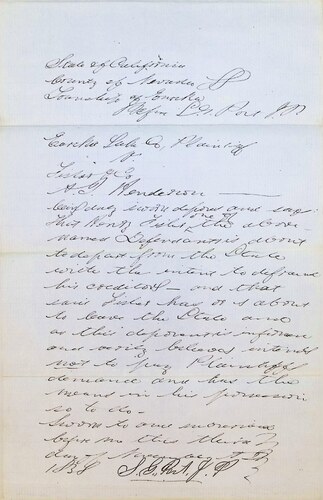 State of California
County of Nevada SS
Township of Eureka
Before S. G. Port J P
Eureka Lake Co, Plaintiff
vs
Fisher & Co
A. J. Henderson
being duly sworn deposes and says
that Henry Fisher one of the above
named Defendants is about
to depart from the State
with the intent to defraud
his creditors — and that
said Fisher has or is about
to leave the State and
as this deponent is informed
and verily believes intends
not to pay Plaintiffs
demand and has the
means in his possession
so to do —
Sworn to and
before me this third
day of November
S. G. Port J. P